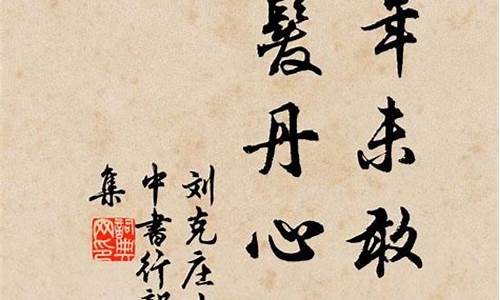 年未敢
髮丹心
刘克庄
中書行
集
詞典
网印